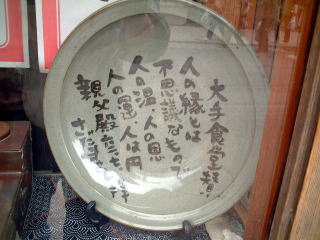 大手食堂賛
人の縁とは
不思議なもので
人の温・人の恩
人の運・人は円
親父殿